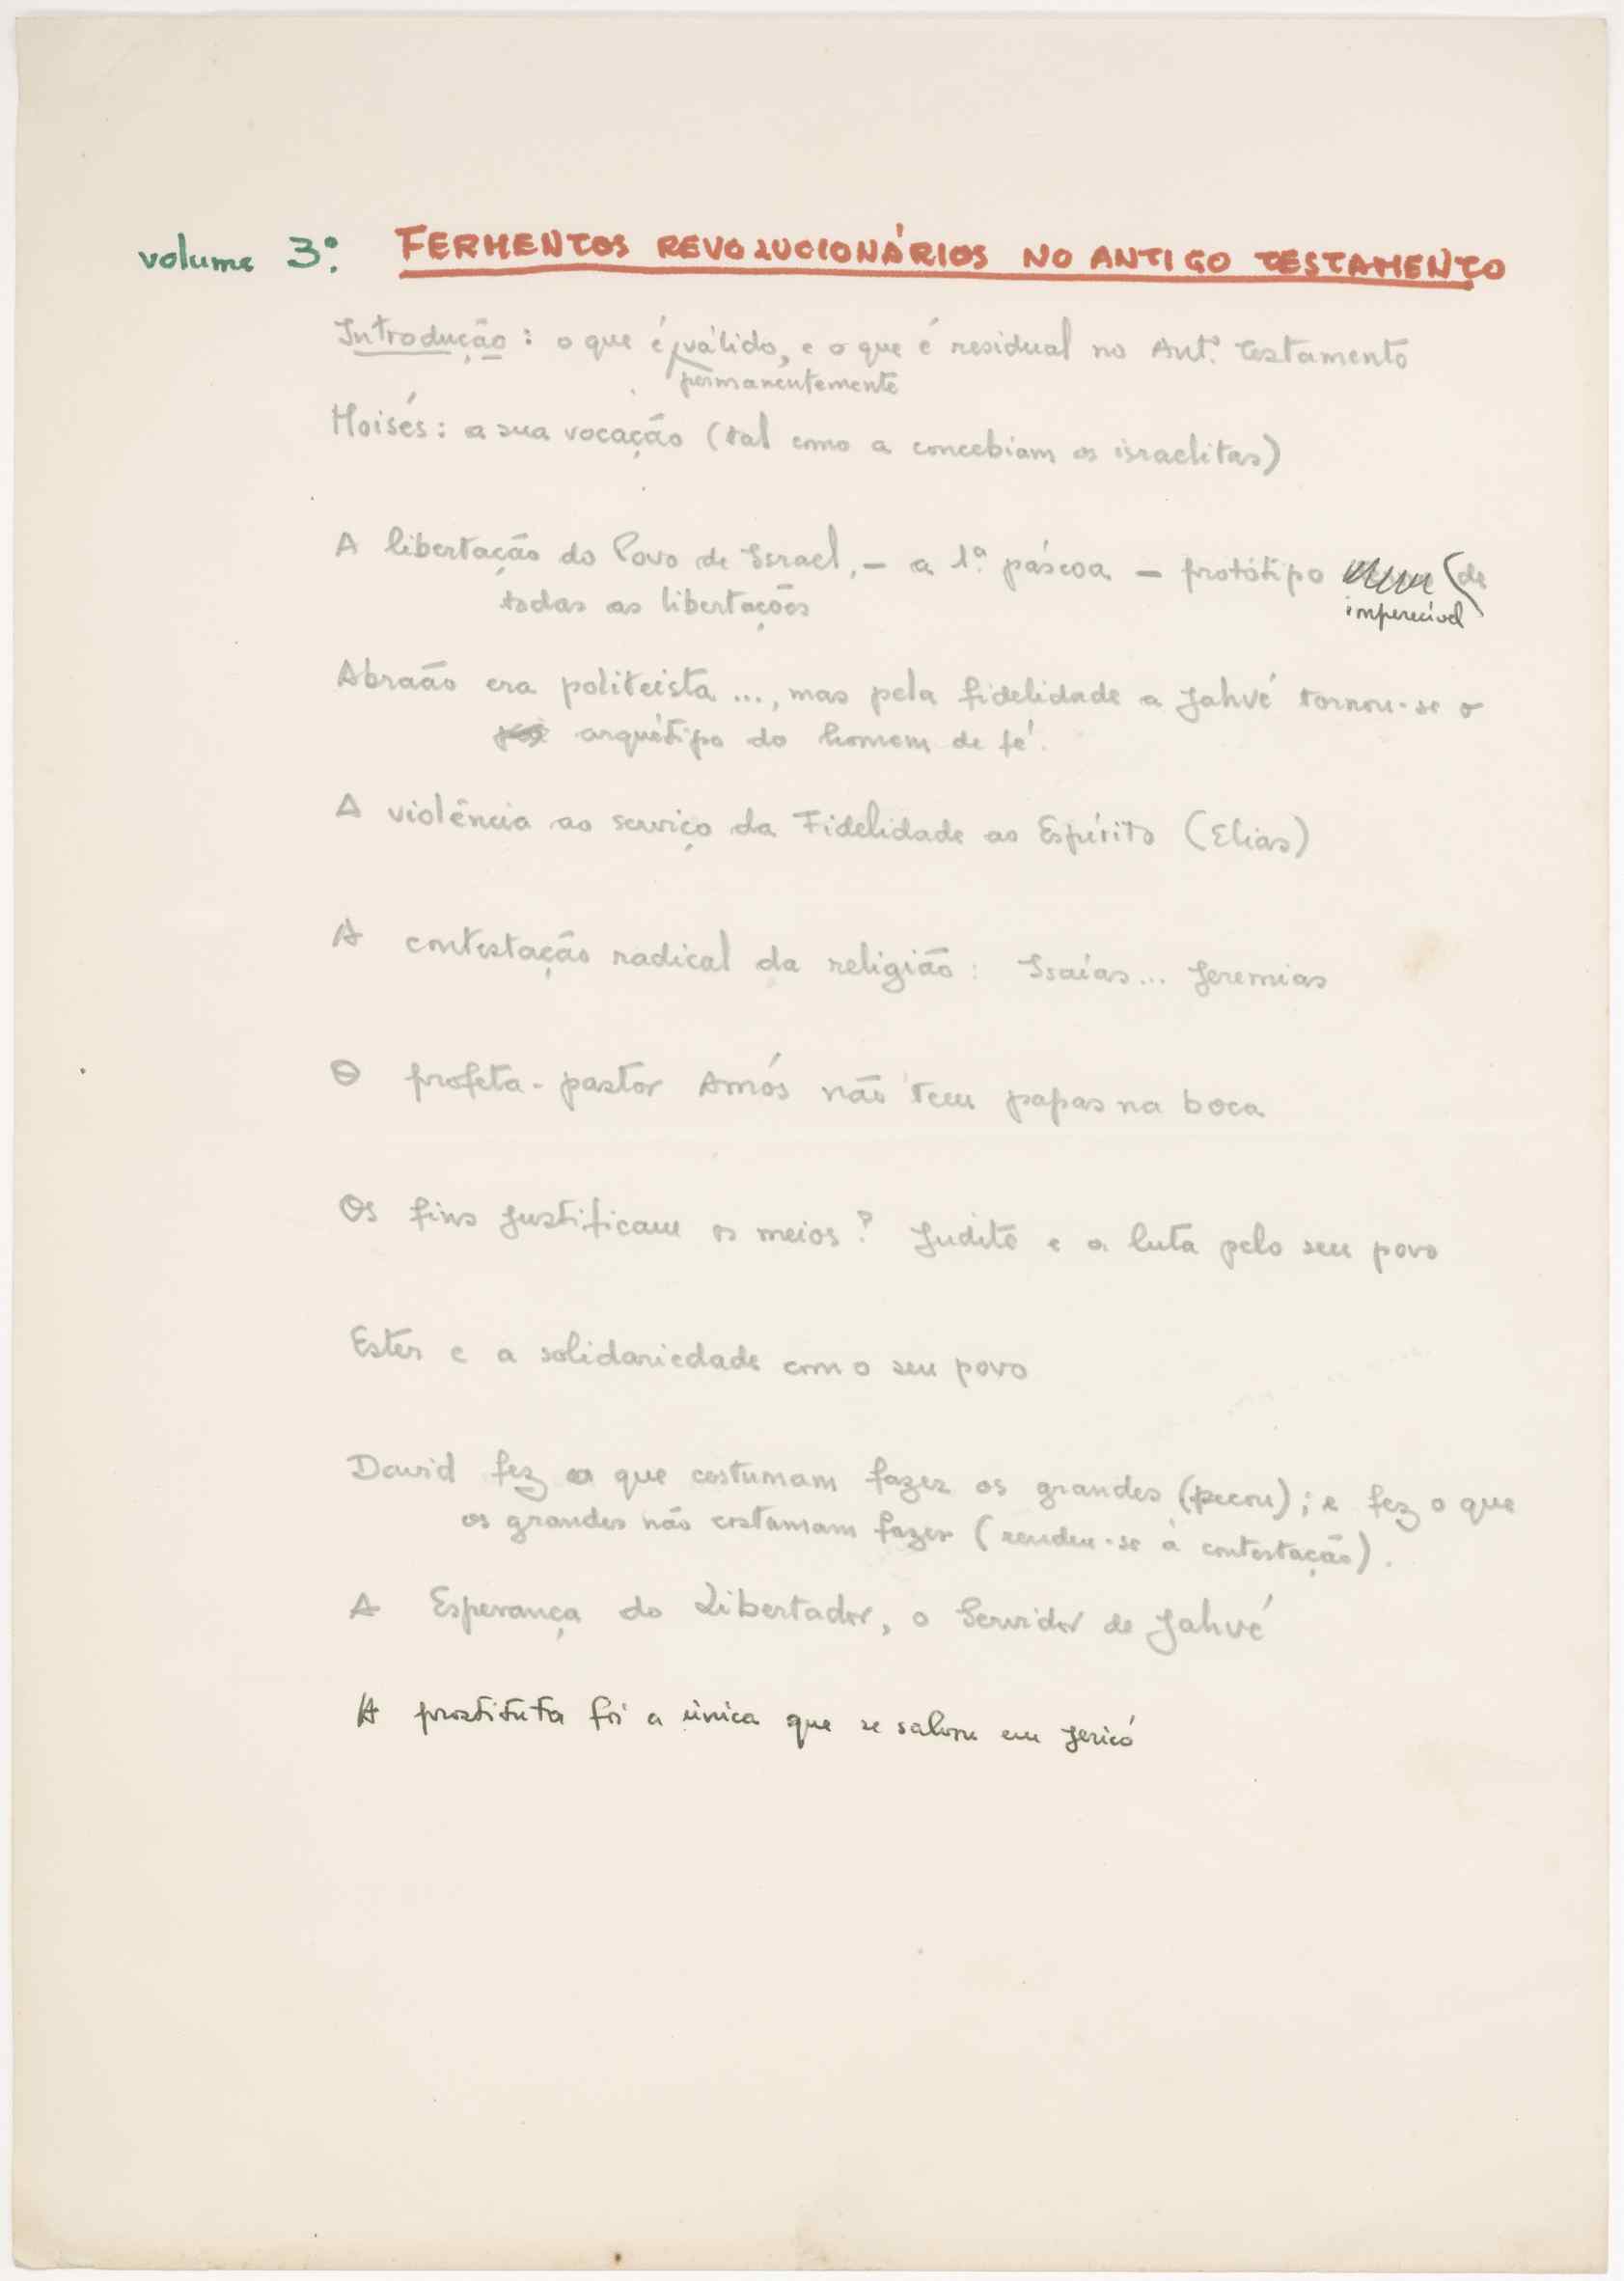 volume 3º: FERMENTOS REVOLUCIONÁRIOS NO ANTIGO TESTAMENTO
Introdução: o que é válido, e o que é residual no Ant.º Testamento
permanentemente
Moisés: a sua vocação (tal como a concebiam os israelitas)
A libertação do Povo de Israel, – a 1ª. páscoa – protótipo de
imperecível
todas as libertações
Abraão era politeista ..., mas pela fidelidade a Jahvé tornou-se o
arquétipo do homem de fé.
A violência ao serviço da Fidelidade ao Espírito (Elias)
A contestação radical da religião: Isaías... Jeremias
O profeta-pastor Amós não tem papas na boca
Os fins justificam os meios? Judite e a luta pelo seu povo
Ester e a solidariedade com o seu povo
David fez o que costumam fazer os grandes (pecou); e fez o que
os grandes não costumam fazer (rendeu-se à contestação).
A Esperança do Libertador, o Servidor de Jahvé
A prostituta foi a única que se salvou em Jericó